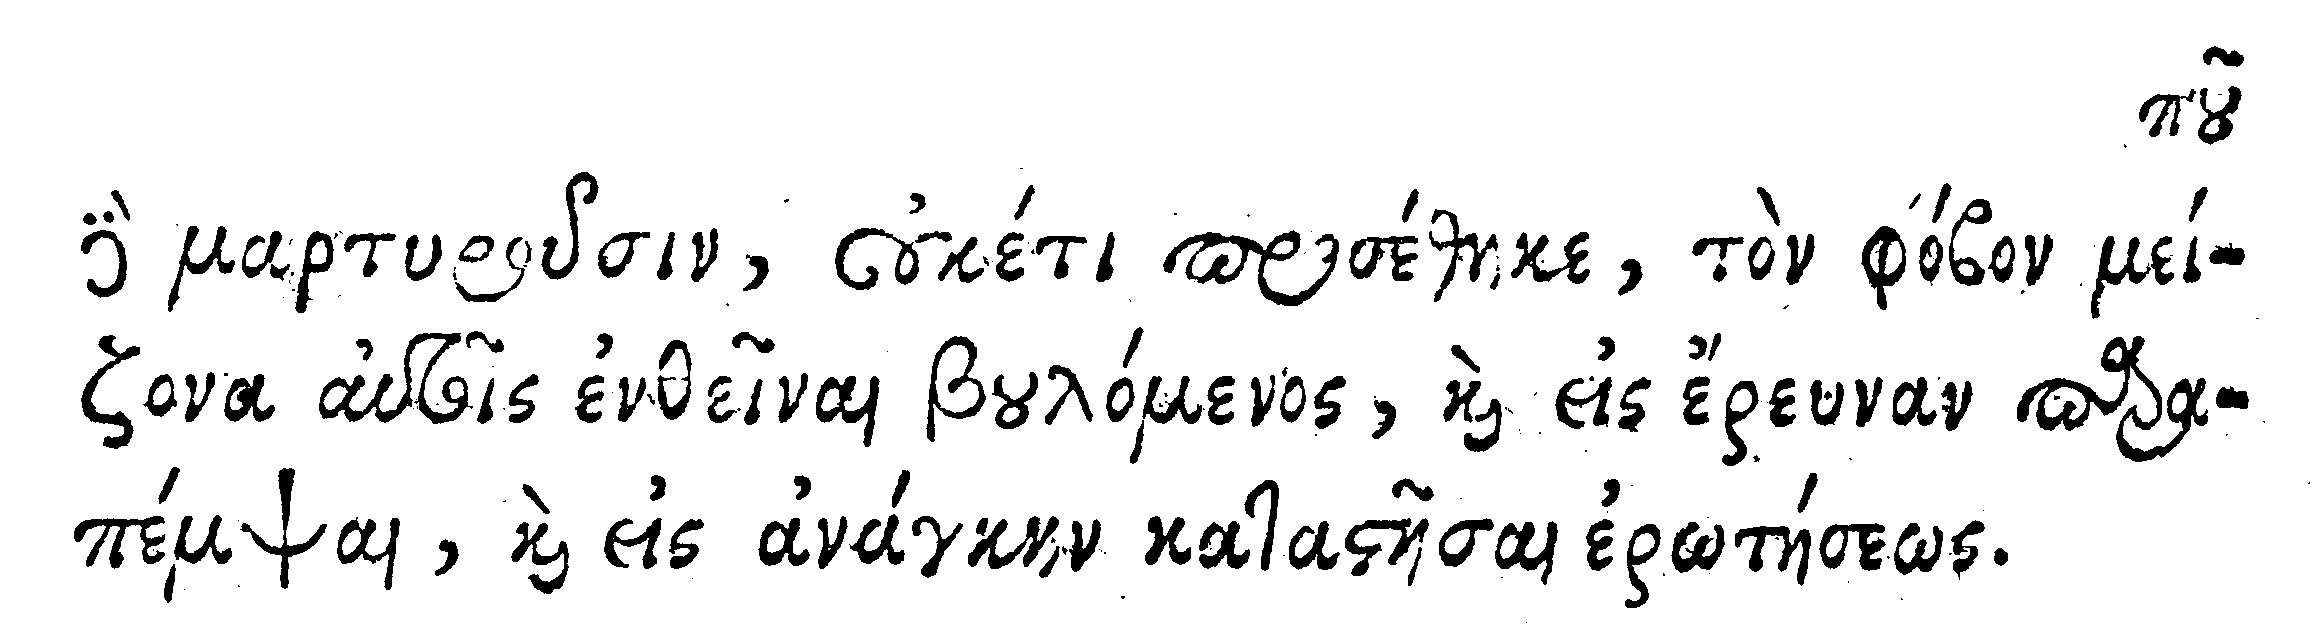 ποῦ
δὲ μαρτυροῦσιν, οὐκέτι προσέθηκε, τὸν φόβον μεί-
ζονα αὐτοῖς ἐνθεῖναι βουλόμενος, καὶ εἰς ἔρευναν παρα-
πέμψαι, καὶ εἰς ἀνάγκην καταστῆσαι ἐρωτήσεως.